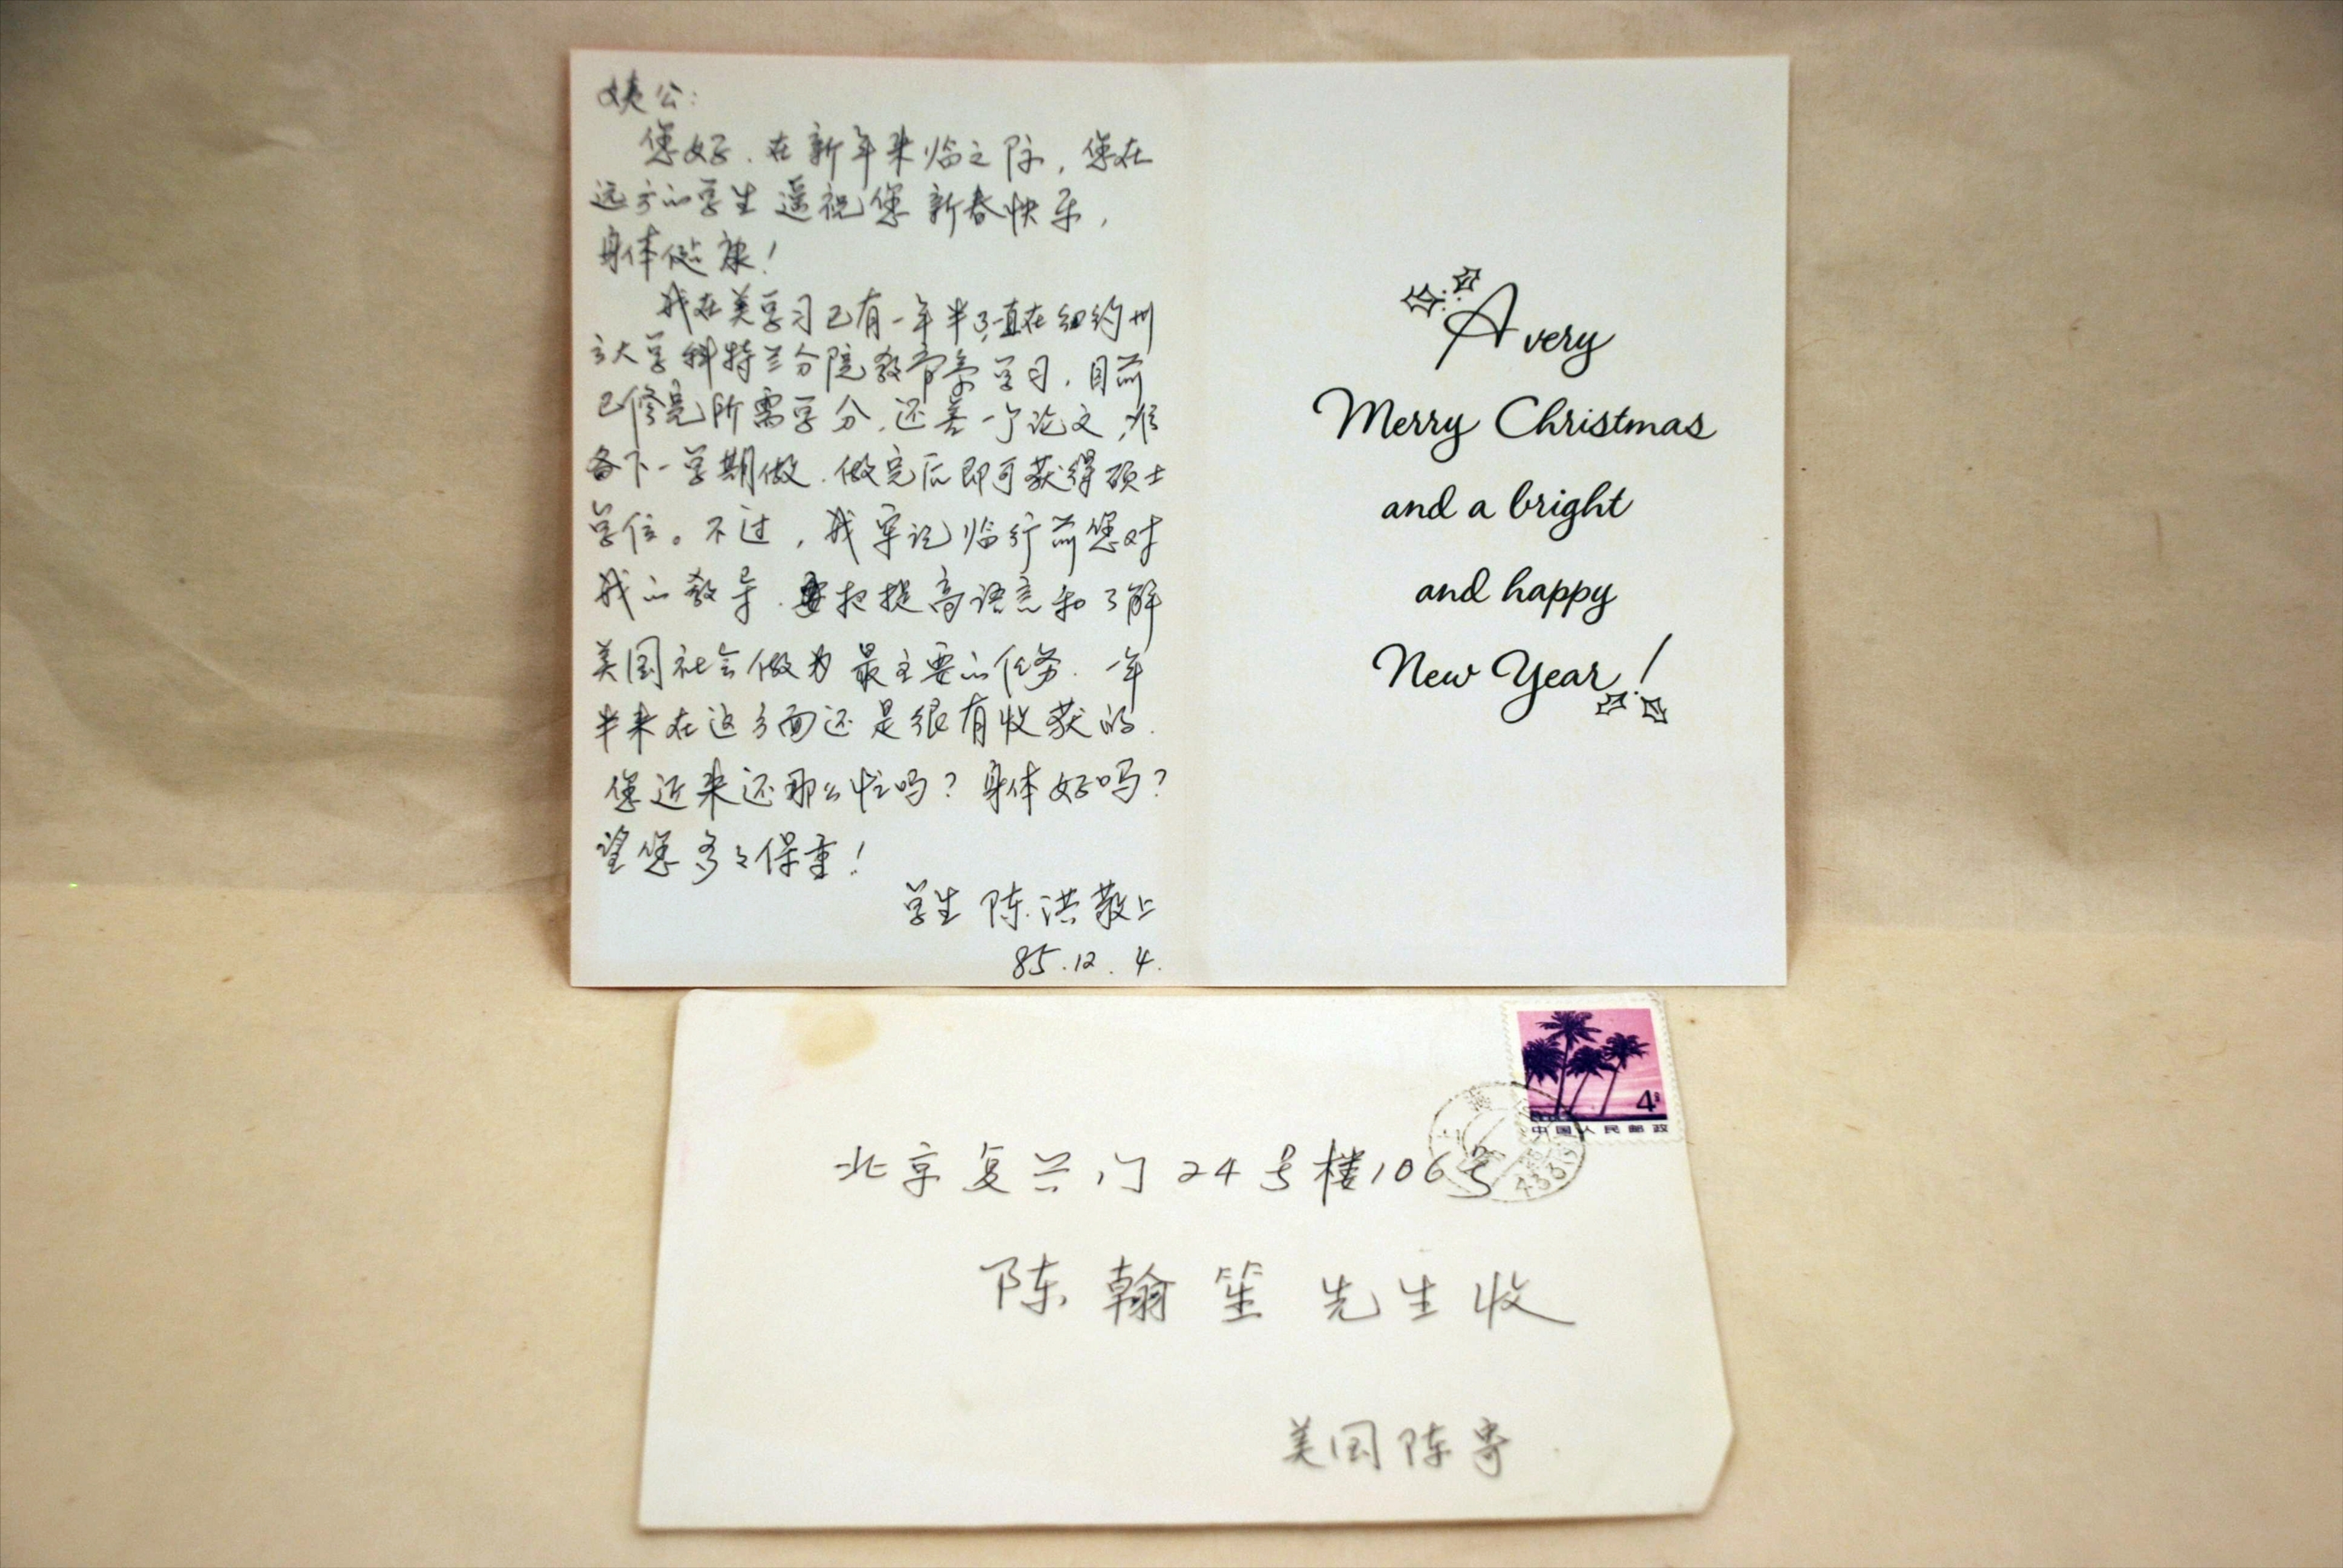 姨公：
您好．在新年来临之际，您在
远方的学生遥祝您新春快乐，
身体健康！
我在美学习已有一年半了，一直在纽约州
立大学科特兰分院教育系学习，目前
已修完所需学分．还差一个论文，准
备下一学期做．做完后即可获得硕士
学位。不过，我牢记临行前您对
我的教导．要把提高语言和了解
美国社会做为最主要的任务．一年
半来在这方面还是很有收获的．
您近来还那么忙吗？身体好吗？
望您多多保重！
学生 陈洪敬上
85.12.4.
A very
Merry Christmas
and a bright
and happy
New Year!
4分
中国人民邮政
北京复兴门24号楼106号
陈翰笙先生收
美国陈寄